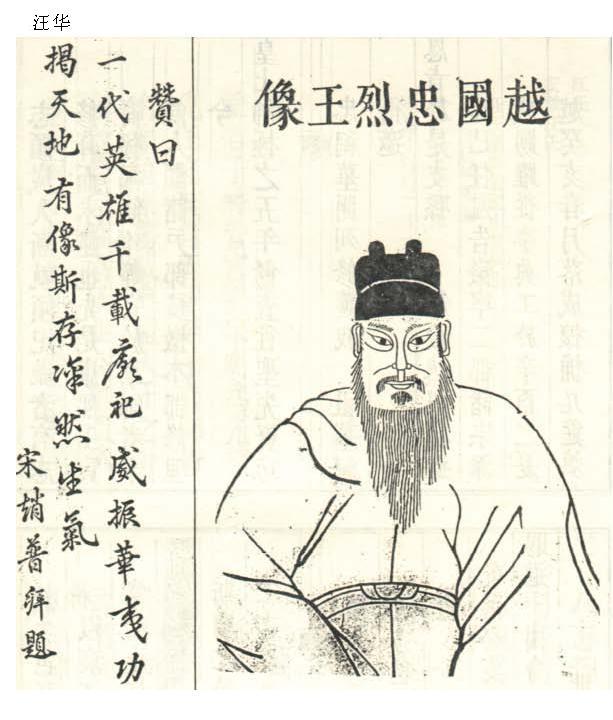 汪华
越國忠烈王像
贊曰
一代英雄千載廟祀威振華夷功
揭天地有像斯存凜然生氣
宋趙普拜題